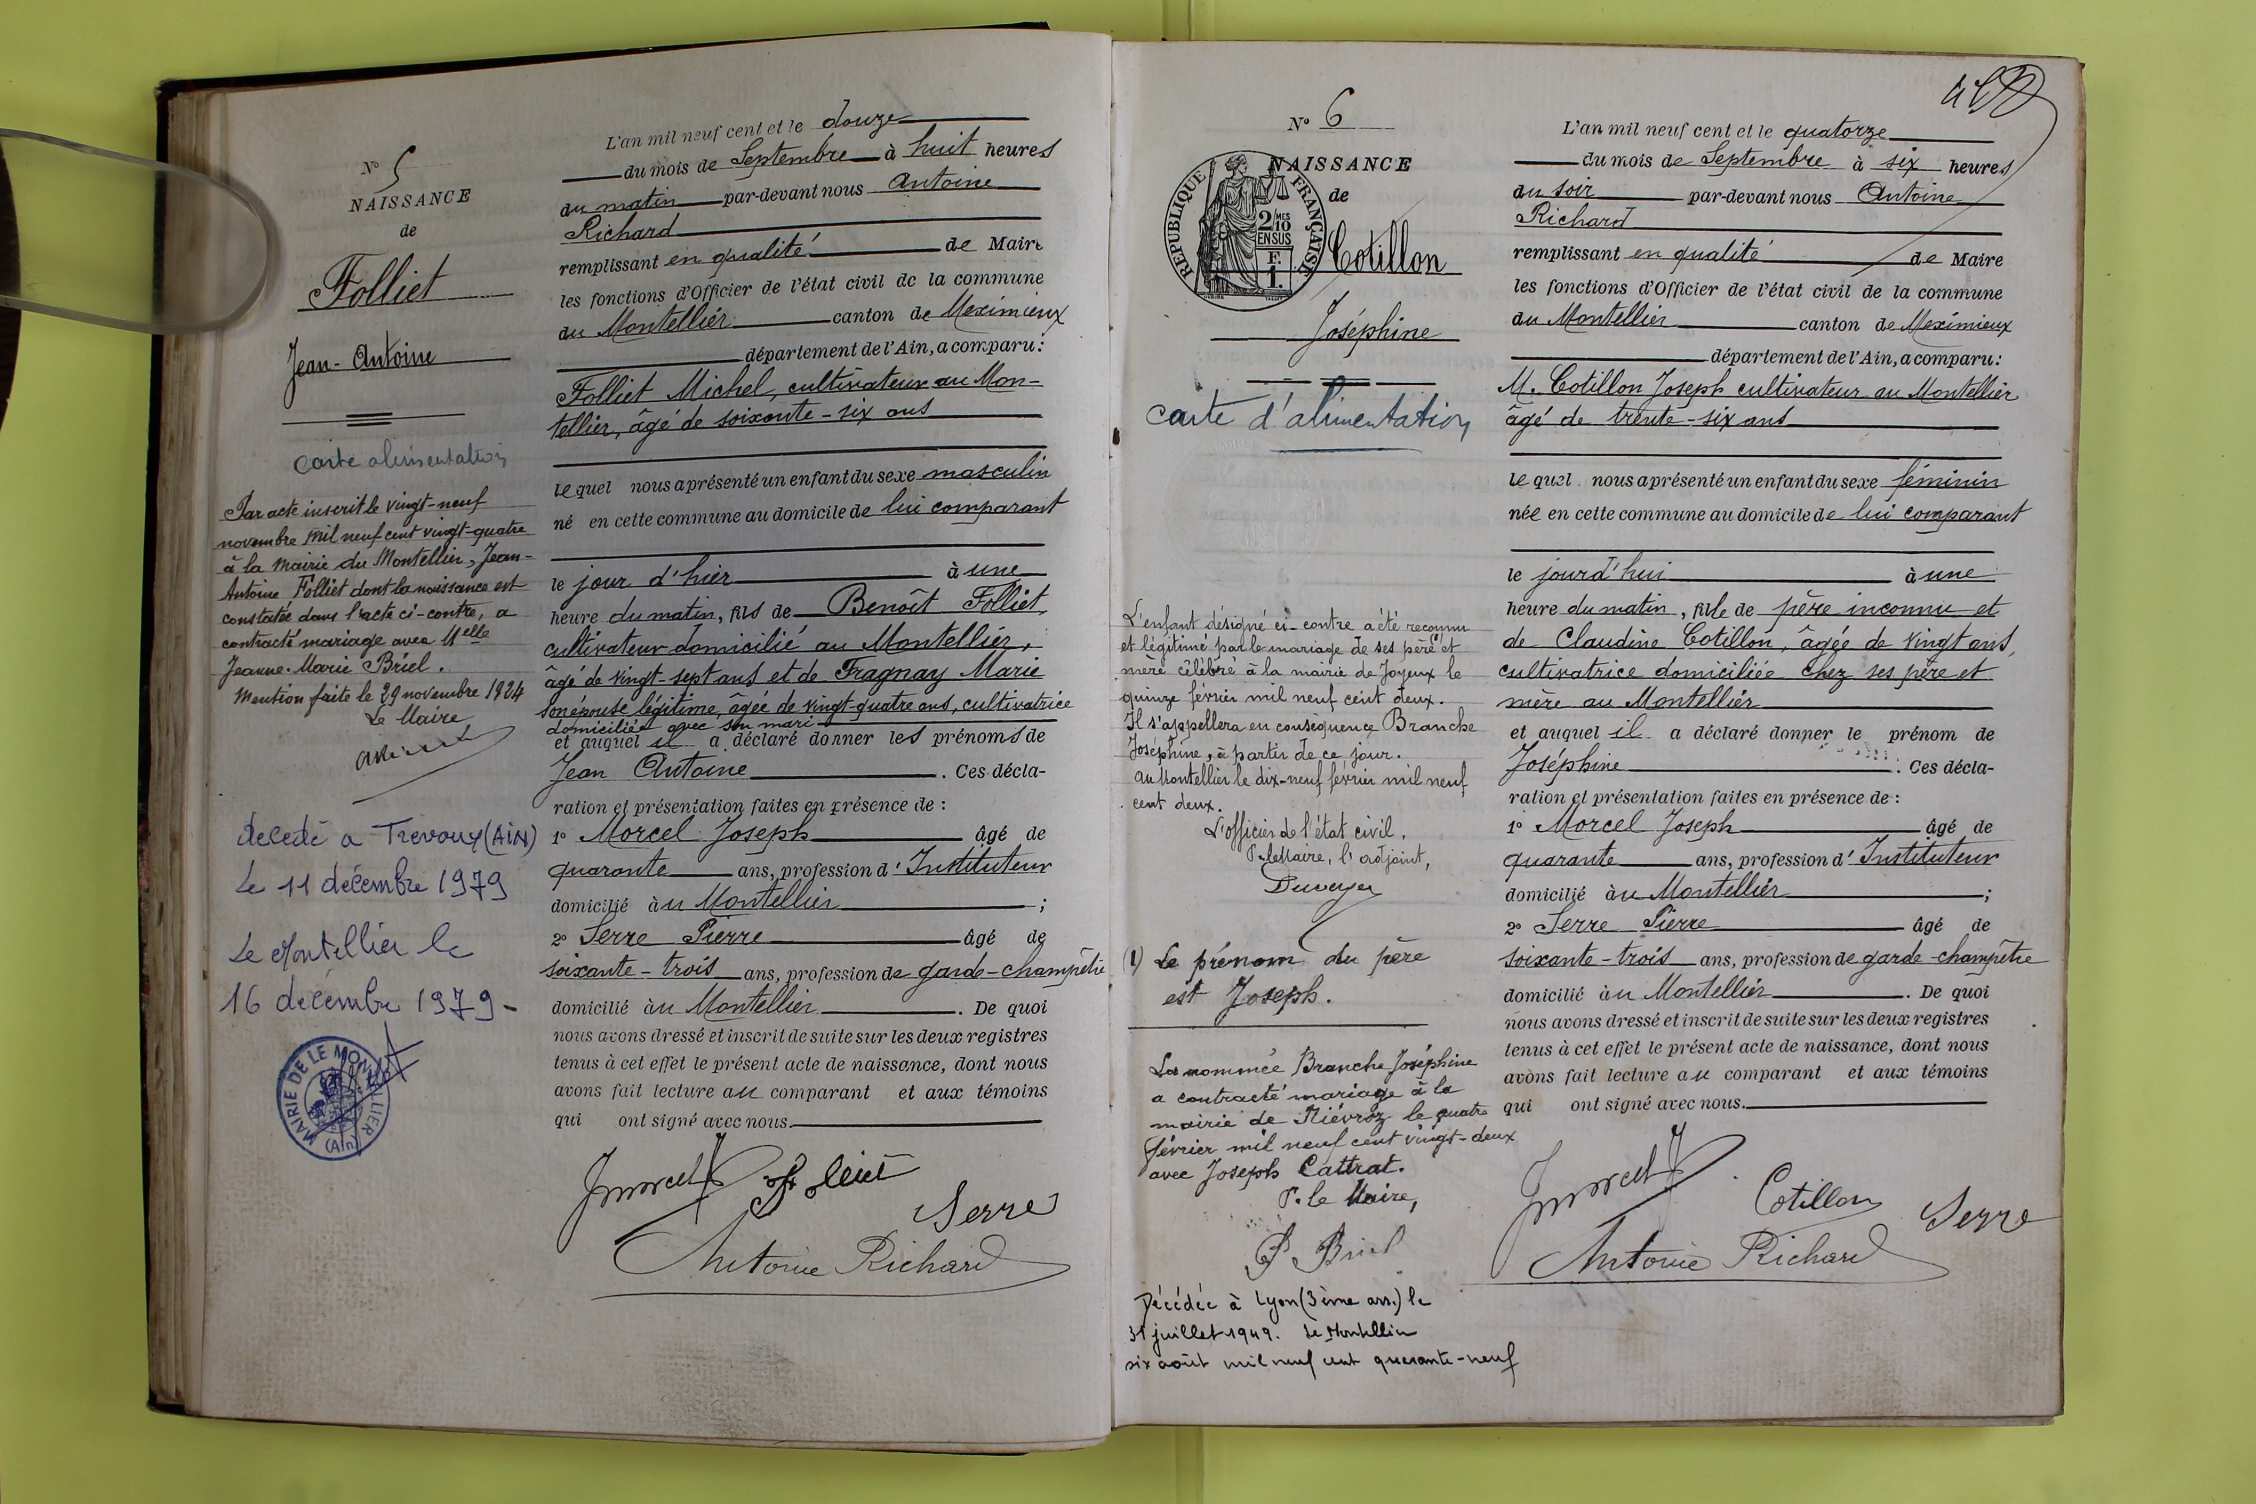 N° 5
NAISSANCE
de
Folliet
Jean-Antoine
Carte alimentation
Par acte inscrit le vingt-neuf
novembre mil neuf cent vingt-quatre
à la mairie du Montellier, Jean-
Antoine Folliet dont la naissance est
constatée dans l'acte ci-contre, a
contracté mariage avec Melle
Jeanne-Marie Briel.
Mention faite le 29 novembre 1924
Le Maire
décédé a Trévoux (AiN)
Le 11 décembre 1979
Le Montellier le
16 décembre 1979-
MAIRIE DE LE MONTELLIER (Ain)
L'an mil neuf cent et le douze
du mois de Septembre à huit heures
du matin par-devant nous Antoine
Richard
remplissant en qualité de Maire
les fonctions d'Officier de l'état civil de la commune
du Montellier canton de Meximieux
département de l'Ain, a comparu:
Folliet Michel, cultivateur au Mon-
tellier, âgé de soixante-six ans
lequel nous a présenté un enfant du sexe masculin
né en cette commune au domicile de lui comparant
le jour d'hier à une
heure du matin, fils de Benoît Folliet,
cultivateur domicilié au Montellier,
âgé de vingt-sept ans et de Fragnay Marie
son épouse légitime, âgée de vingt-quatre ans, cultivatrice
domiciliée avec son mari
et auquel il a déclaré donner les prénoms de
Jean Antoine. Ces décla-
ration et présentation faites en présence de :
1° Morcel Joseph âgé de
quarante ans, profession d'Instituteur
domicilié au Montellier ;
2° Serre Pierre âgé de
soixante-trois ans, profession de garde-champêtre
domicilié au Montellier. De quoi
nous avons dressé et inscrit de suite sur les deux registres
tenus à cet effet le présent acte de naissance, dont nous
avons fait lecture au comparant et aux témoins
qui ont signé avec nous.
Jmorcel Folliet
Serre
Antoine Richard
N° 6
NAISSANCE
de
REPUBLIQUE FRANÇAISE
2/10 MES
EN SUS
F. 1.
Cotillon
Joséphine
Carte d'alimentation
L'enfant désigné ci-contre a été reconnu
et légitimé par le mariage de ses père et
mère célébré à la mairie de Joyeux le
quinze février mil neuf cent deux.
Il s'appellera en conséquence Branche
Joséphine, à partir de ce jour.
Au Montellier le dix-neuf février mil neuf
cent deux.
L'officier de l'état civil.
P. le Maire, l'adjoint,
(1) Le prénom du père
est Joseph.
La nommée Branche Joséphine
a contracté mariage à la
mairie de Niévroz le quatre
février mil neuf cent vingt-deux
avec Joseph Cattrat.
P. le Maire,
P Briel
Décédée à Lyon (3ème arr.) le
31 juillet 1949. Le Montellier
six août mil neuf cent quarante-neuf
L'an mil neuf cent et le quatorze
du mois de Septembre à six heures
du soir par-devant nous Antoine
Richard
remplissant en qualité de Maire
les fonctions d'Officier de l'état civil de la commune
du Montellier canton de Meximieux
département de l'Ain, a comparu:
M. Cotillon Joseph cultivateur au Montellier
âgé de trente-six ans
lequel nous a présenté un enfant du sexe féminin
née en cette commune au domicile de lui comparant
le jourd'hui à une
heure du matin, fille de père inconnu et
de Claudine Cotillon, âgée de vingt ans,
cultivatrice domiciliée chez ses père et
mère au Montellier
et auquel il a déclaré donner le prénom de
Joséphine. Ces décla-
ration et présentation faites en présence de :
1° Morcel Joseph âgé de
quarante ans, profession d'Instituteur
domicilié au Montellier ;
2° Serre Pierre âgé de
soixante-trois ans, profession de garde-champêtre
domicilié au Montellier. De quoi
nous avons dressé et inscrit de suite sur les deux registres
tenus à cet effet le présent acte de naissance, dont nous
avons fait lecture au comparant et aux témoins
qui ont signé avec nous.
Jmorcel Cotillon Serre
Antoine Richard